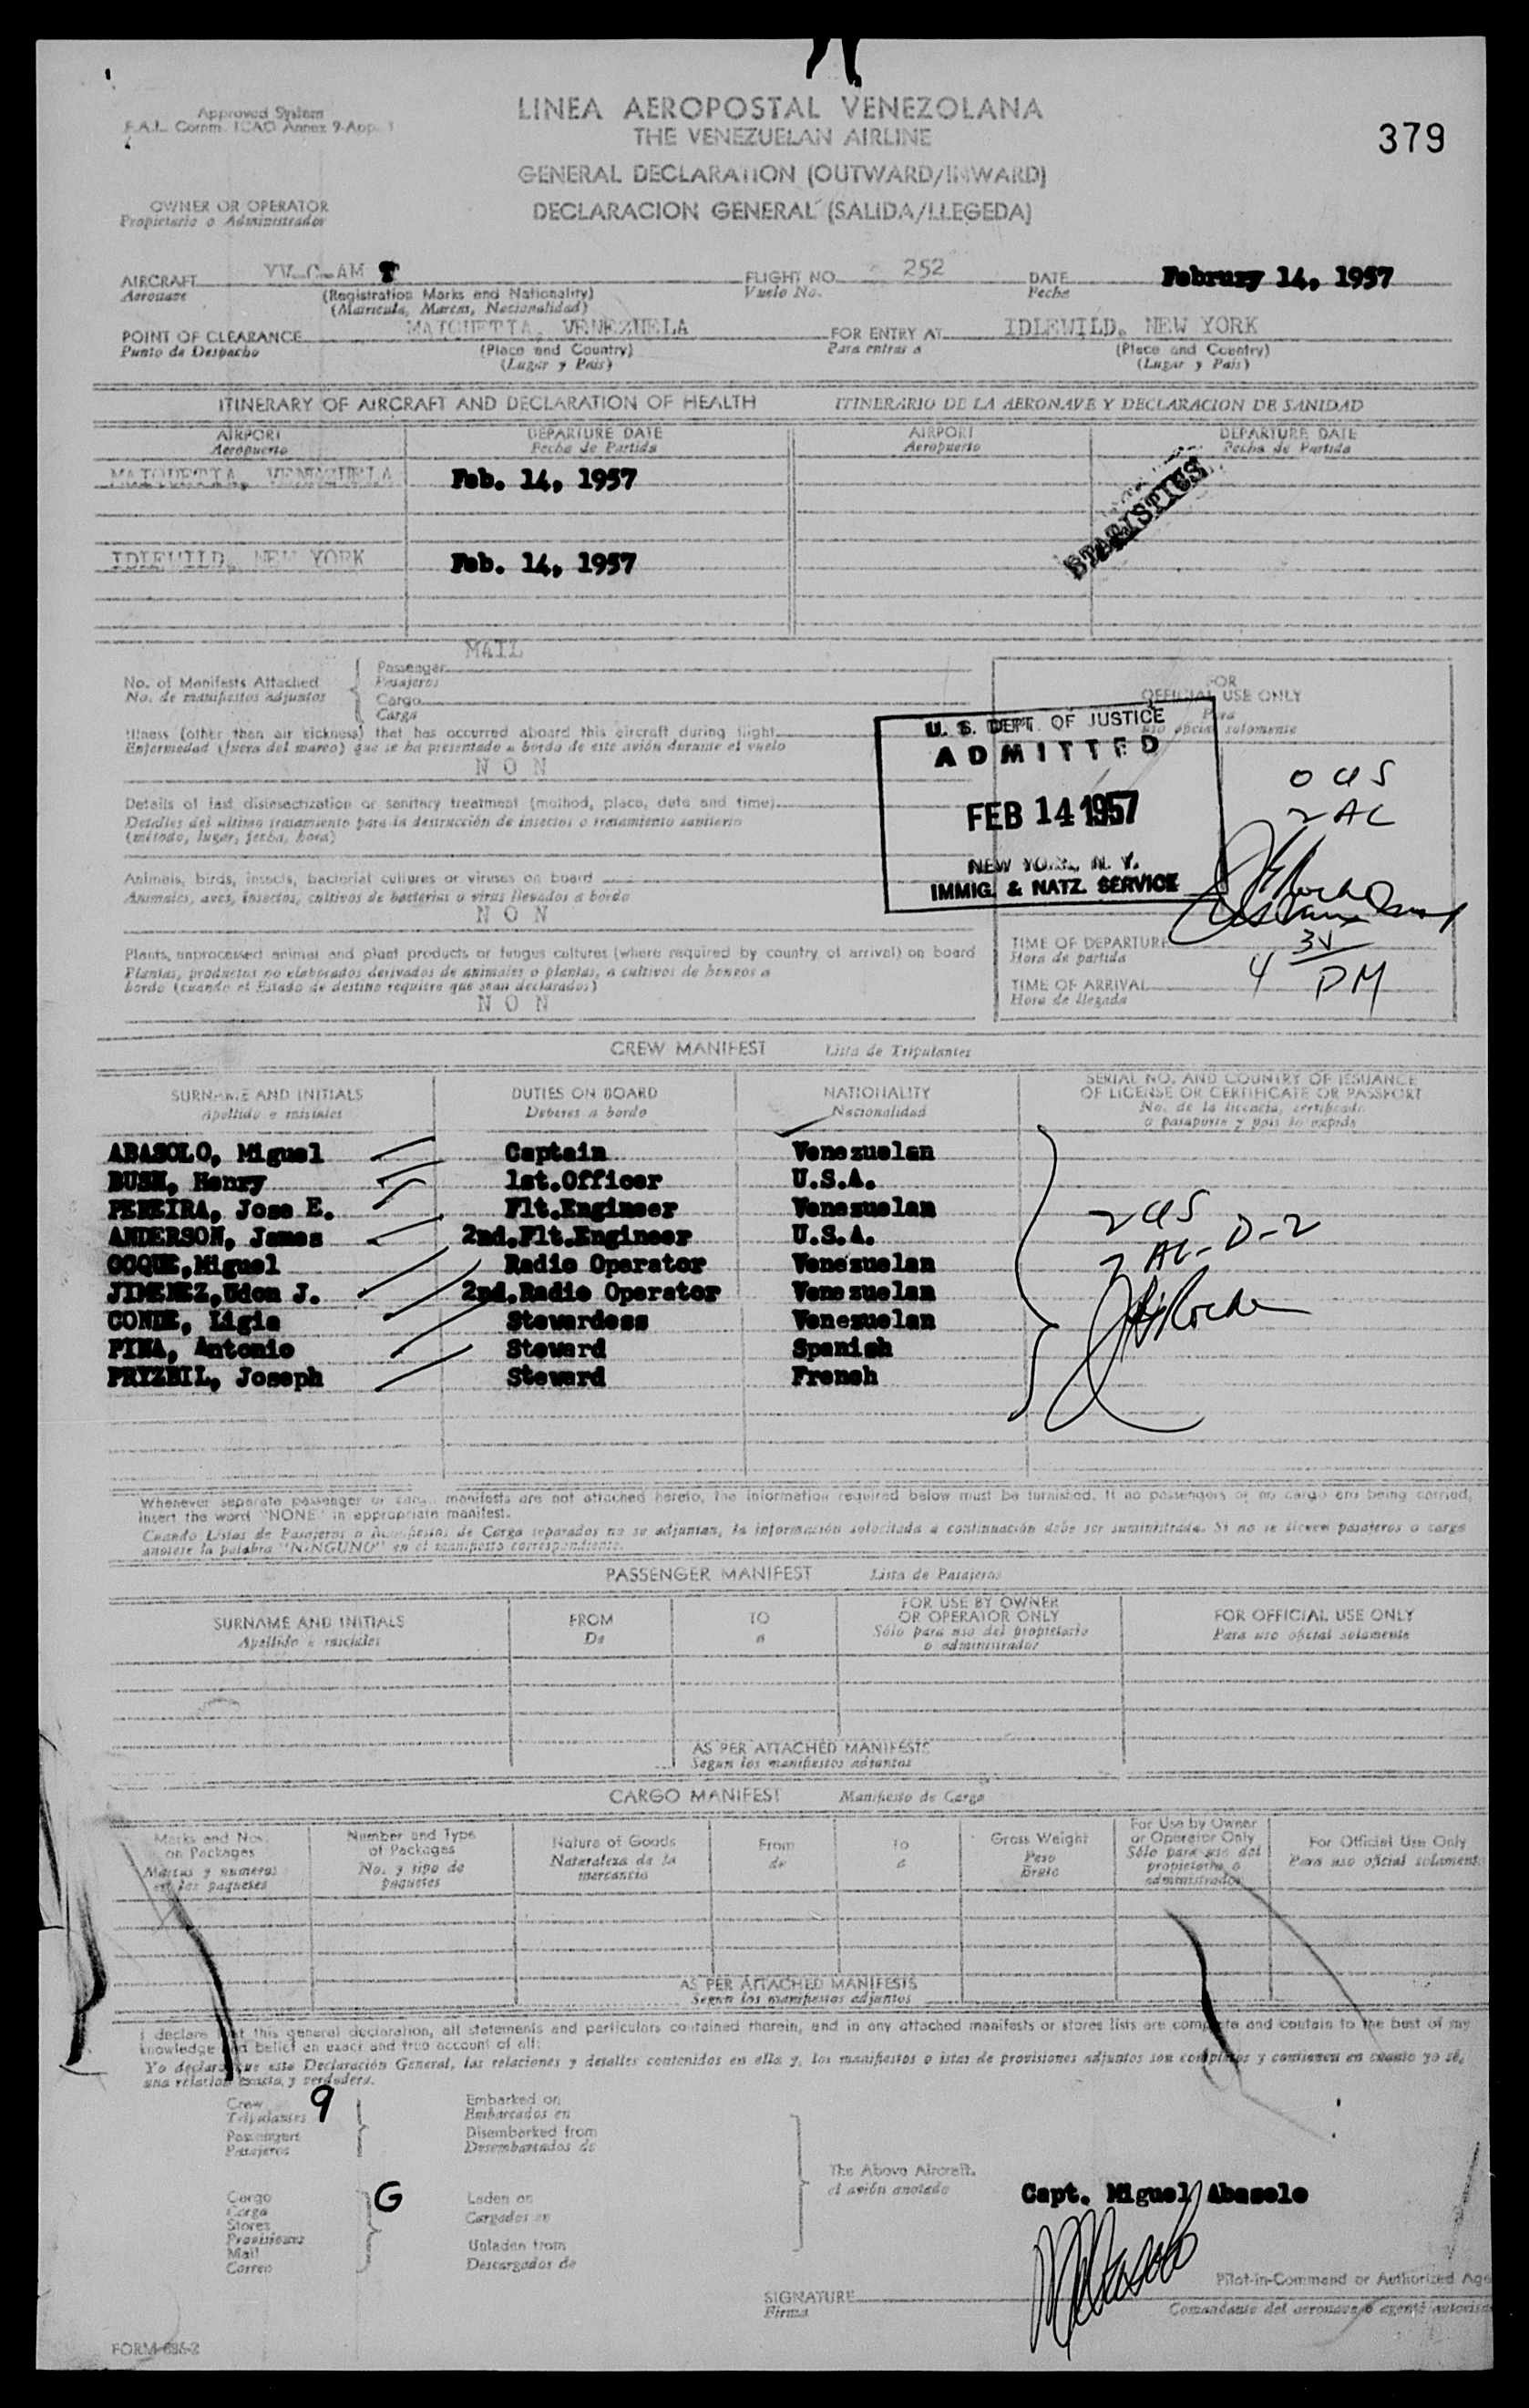 Approved System
F.A.L. Comm. ICAO Annex 9-App. 1
LINEA AEROPOSTAL VENEZOLANA
THE VENEZUELAN AIRLINE
379
GENERAL DECLARATION (OUTWARD/INWARD)
OWNER OR OPERATOR
DECLARACION GENERAL (SALIDA/LLEGEDA)
Propietario o Administrador
AIRCRAFT YV-C-AM T FLIGHT NO. 252 DATE Februrzy 14, 1957
Aeronave (Registration Marks and Nationality) Vuelo No. Fecha
(Matricula, Marcas, Nacionalidad)
POINT OF CLEARANCE MAIQUETIA, VENEZUELA FOR ENTRY AT IDLEWILD, NEW YORK
Punto de Despacho (Place and Country) Para entrar a (Place and Country)
(Lugar y Pais) (Lugar y Pais)
ITINERARY OF AIRCRAFT AND DECLARATION OF HEALTH ITINERARIO DE LA AERONAVE Y DECLARACION DE SANIDAD
AIRPORT DEPARTURE DATE AIRPORT DEPARTURE DATE
Aeropuerto Fecha de Partida Aeropuerto Fecha de Partida
MAIQUETIA, VENEZUELA Feb. 14, 1957
STATISTICS
IDLEWILD, NEW YORK Feb. 14, 1957
MAIL
No. of Manifests Attached Passenger
No. de manifiestos adjuntos Pasajeros
Cargo
Carga
FOR
OFFICIAL USE ONLY
Para
uso oficial solamente
Illness (other than air sickness) that has occurred aboard this aircraft during flight
Enfermedad (fuera del mareo) que se ha presentado a bordo de este avión durante el vuelo
N O N
U. S. DEPT. OF JUSTICE
ADMITTED
FEB 14 1957
NEW YORK, N. Y.
IMMIG. & NATZ. SERVICE
0 US
2 AC
Details of last disinsectization or sanitary treatment (method, place, date and time)
Detalles del ultimo tratamiento para la destrucción de insectos o tratamiento sanitario
(método, lugar, fecha, hora)
Animals, birds, insects, bacterial cultures or viruses on board
Animales, aves, insectos, cultivos de bacterias o virus llevados a bordo
N O N
Plants, unprocessed animal and plant products or fungus cultures (where required by country of arrival) on board
Plantas, productos no elaborados derivados de animales o plantas, o cultivos de hongos a
bordo (cuando el Estado de destino requiere que sean declarados)
N O N
TIME OF DEPARTURE
Hora de partida
TIME OF ARRIVAL
Hora de llegada
4 PM
CREW MANIFEST Lista de Tripulantes
SURNAME AND INITIALS DUTIES ON BOARD NATIONALITY SERIAL NO. AND COUNTRY OF ISSUANCE
OF LICENSE OR CERTIFICATE OR PASSPORT
Apellido e iniciales Deberes a bordo Nacionalidad No. de la licencia, certificado
o pasaporte y pais lo expide
ABASOLO, Miguel Captain Venezuelan
BUSH, Henry 1st.Officer U.S.A.
PEREIRA, Jose E. Flt.Engineer Venezuelan
ANDERSON, James 2nd.Flt.Engineer U.S.A.
COQUE,Miguel Radio Operator Venezuelan
JIMENEZ,Udon J. 2nd.Radio Operator Venezuelan
CONDE, Ligia Stewardess Venezuelan
PINA, Antonio Steward Spanish
PRYZBIL, Joseph Steward French
2 US
7 AC-D-2
Whenever separate passenger or cargo manifests are not attached hereto, the information required below must be furnished. If no passengers or no cargo are being carried,
insert the word "NONE" in appropriate manifest.
Cuando Listas de Pasajeros o Manifiestos de Carga separados no se adjuntan, la información solicitada a continuación debe ser suministrada. Si no se llevan pasajeros o carga
anotese la palabra "NINGUNO" en el manifiesto correspondiente.
PASSENGER MANIFEST Lista de Pasajeros
SURNAME AND INITIALS FROM TO FOR USE BY OWNER
OR OPERATOR ONLY FOR OFFICIAL USE ONLY
Apellido e iniciales De a Sólo para uso del propietario
o administrador Para uso oficial solamente
AS PER ATTACHED MANIFESTS
Segun los manifiestos adjuntos
CARGO MANIFEST Manifiesto de Carga
Marks and Nos.
on Packages
Marcas y numeros
en los paquetes
Number and Type
of Packages
No. y tipo de
paquetes
Nature of Goods
Naturaleza de la
mercancia
From
de
To
a
Gross Weight
Peso
Bruto
For Use by Owner
or Operator Only
Sólo para uso del
propietario o
administrador
For Official Use Only
Para uso oficial solamente
AS PER ATTACHED MANIFESTS
Segun los manifiestos adjuntos
I declare that this general declaration, all statements and particulars contained therein, and in any attached manifests or stores lists are complete and contain to the best of my
knowledge and belief an exact and true account of all:
Yo declaro que esta Declaración General, las relaciones y detalles contenidos en ella y, los manifiestos o istas de provisiones adjuntos son completos y contienen en cuanto yo sé,
una relación exacta y verdadera.
Crew 9
Tripulantes
Passengers
Pasajeros
Embarked on
Embarcados en
Disembarked from
Desembarcados de
Cargo
Carga
Stores
Provisiones
Mail
Correo
G
Laden on
Cargados en
Unladen from
Descargados de
The Above Aircraft.
el avión anotado
Capt. Miguel Abasolo
Pilot-in-Command or Authorized Age
SIGNATURE
Firma
Comandante del aeronave o agente autoriza
FORM-686-2